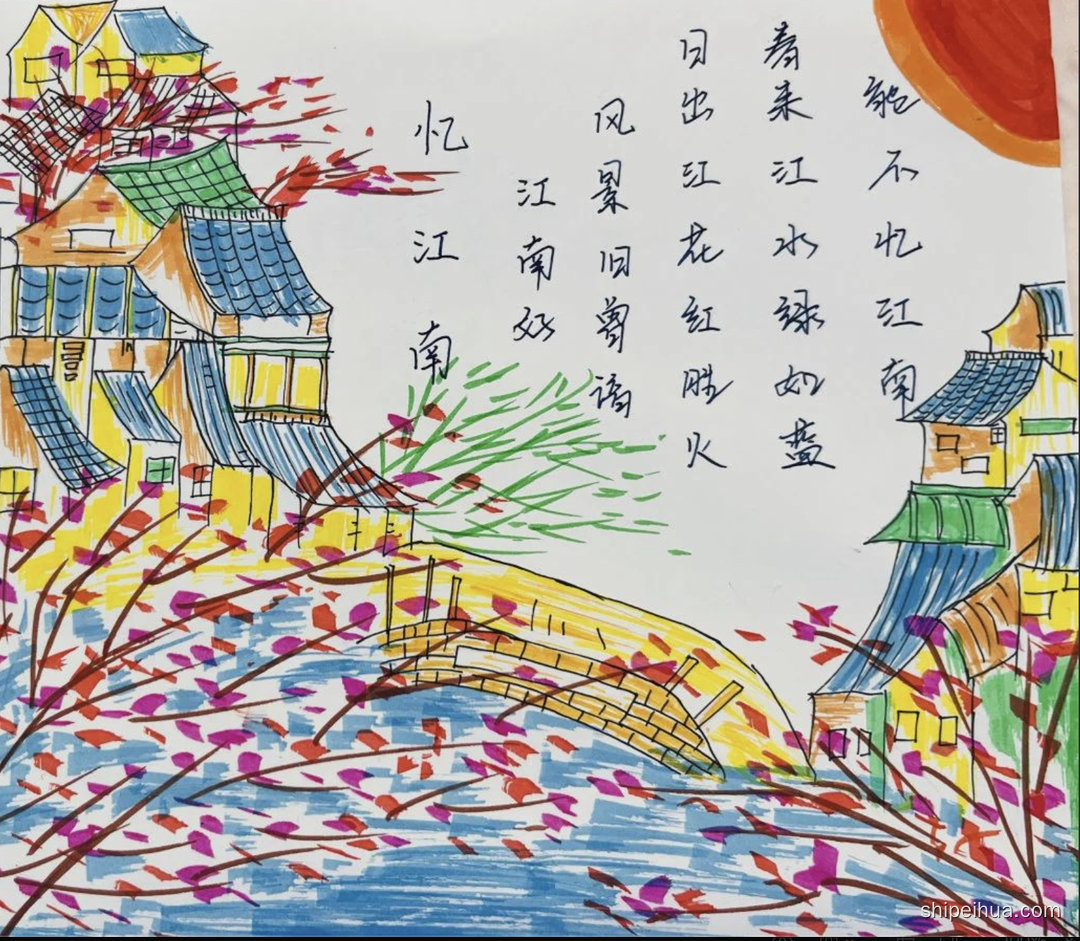 忆江南
江南好
风景旧曾谙
日出江花红胜火
春来江水绿如蓝
能不忆江南
shipeihua.com